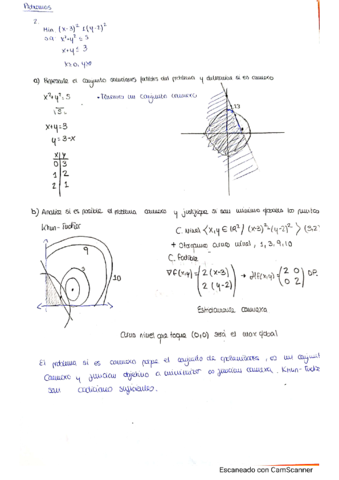 Problemas
2.
Min (x-3)² + (y-2)²
s.a: x²+y² ≤ 5
x+y ≤ 3
x≥0, y≥0
a) Represente el conjunto soluciones factibles del problema y determine si es convexo
x²+y²=5 • Tenemos un conjunto convexo
√5
x+y=3
y=3-x
x | y
0 | 3
1 | 2
2 | 1
b) Analice si es posible el problema convexo y justifique si son mínimo globales los puntos
Khun-Tucker
9
10
C. Nivel (x,y ∈ ℝ² / (x-3)²+(y-2)²) (3,2)
→ Obtenemos curvas nivel, 1, 3, 9, 10
C. Factible
∇f(x,y) = (2(x-3) 2(y-2)) → Hf(x,y) = (2 0 0 2) DP.
Estrictamente convexa
Curva nivel que toque (0,0) será el max global
El problema si es convexo porque el conjunto de oportunidades, es un conjunto
convexo y función objetivo a minimizar es función convexa. Khun-Tucker
son condiciones suficientes.
Escaneado con CamScanner